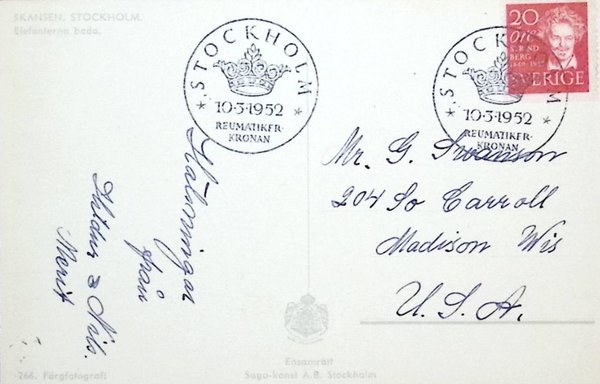 SKANSEN, STOCKHOLM.
Elefanterna bada.
STOCKHOLM
10·5·1952
REUMATIKER-
KRONAN
20
öre
STRIND
BERG
1849 · 1949
SVERIGE
STOCKHOLM
10·5·1952
REUMATIKER-
KRONAN
Hälsningar
från
& Nils.
Merit
Mr. G. Swanson
204 So Carroll
Madison Wis
U.S.A.
266. Färgfotografi
Ensamrätt
Sago-konst A.B. Stockholm